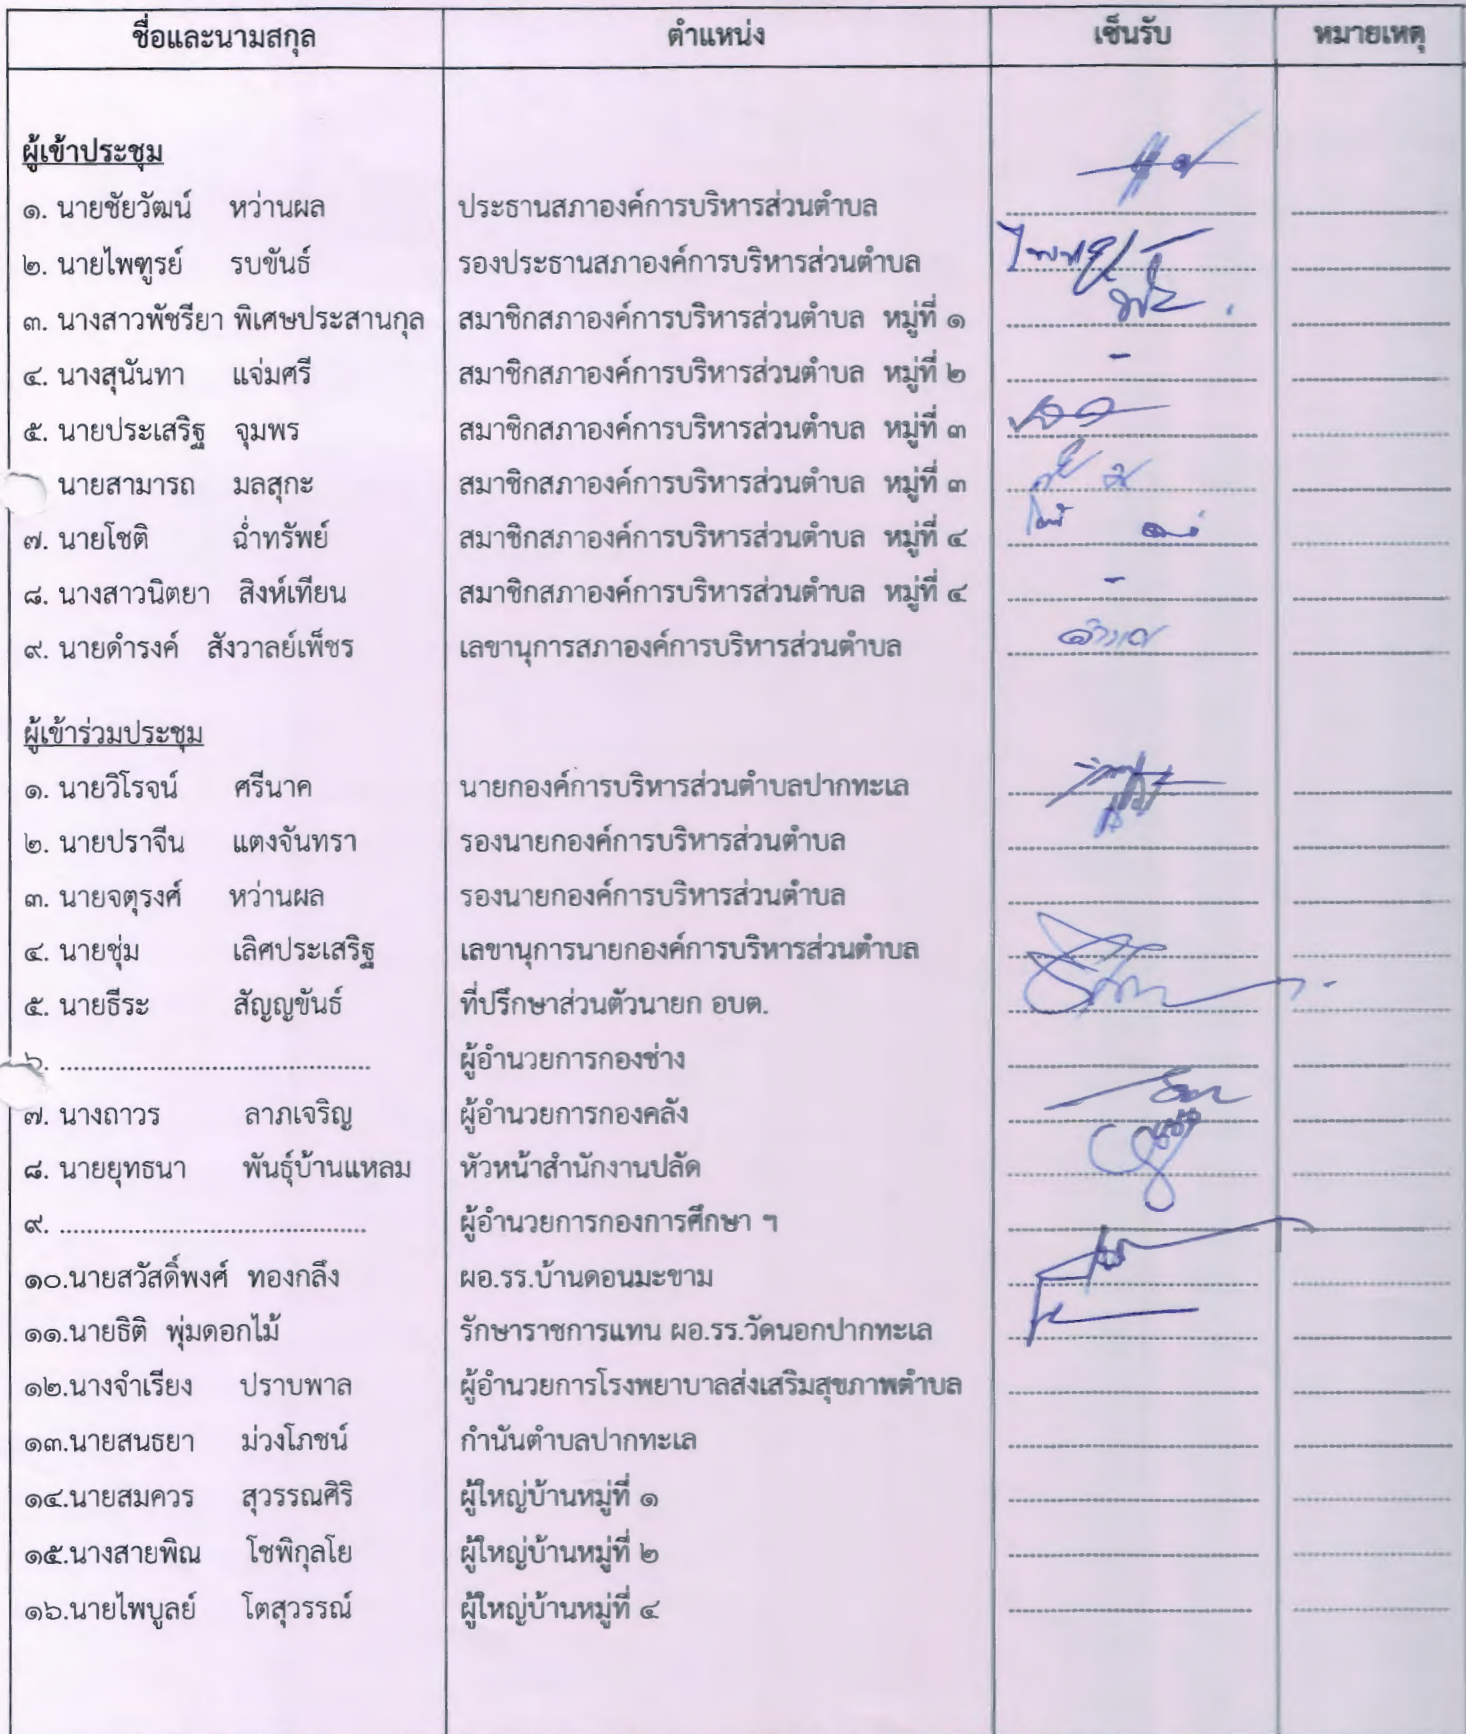 ชื่อและนามสกุล ตำแหน่ง เซ็นรับ หมายเหตุ
ผู้เข้าประชุม
๑. นายชัยวัฒน์ หว่านผล ประธานสภาองค์การบริหารส่วนตำบล
๒. นายไพฑูรย์ รบขันธ์ รองประธานสภาองค์การบริหารส่วนตำบล
๓. นางสาวพัชรียา พิเศษประสานกุล สมาชิกสภาองค์การบริหารส่วนตำบล หมู่ที่ ๑
๔. นางสุนันทา แจ่มศรี สมาชิกสภาองค์การบริหารส่วนตำบล หมู่ที่ ๒ -
๕. นายประเสริฐ จุมพร สมาชิกสภาองค์การบริหารส่วนตำบล หมู่ที่ ๓
นายสามารถ มลสุกะ สมาชิกสภาองค์การบริหารส่วนตำบล หมู่ที่ ๓
๗. นายโชติ ฉ่ำทรัพย์ สมาชิกสภาองค์การบริหารส่วนตำบล หมู่ที่ ๔
๘. นางสาวนิตยา สิงห์เทียน สมาชิกสภาองค์การบริหารส่วนตำบล หมู่ที่ ๔ -
๙. นายดำรงค์ สังวาลย์เพ็ชร เลขานุการสภาองค์การบริหารส่วนตำบล
ผู้เข้าร่วมประชุม
๑. นายวิโรจน์ ศรีนาค นายกองค์การบริหารส่วนตำบลปากทะเล
๒. นายปราจีน แตงจันทรา รองนายกองค์การบริหารส่วนตำบล
๓. นายจตุรงศ์ หว่านผล รองนายกองค์การบริหารส่วนตำบล
๔. นายชุ่ม เลิศประเสริฐ เลขานุการนายกองค์การบริหารส่วนตำบล
๕. นายธีระ สัญญขันธ์ ที่ปรึกษาส่วนตัวนายก อบต.
๖. .............................................. ผู้อำนวยการกองช่าง
๗. นางถาวร ลาภเจริญ ผู้อำนวยการกองคลัง
๘. นายยุทธนา พันธุ์บ้านแหลม หัวหน้าสำนักงานปลัด
๙. ............................................. ผู้อำนวยการกองการศึกษา ฯ
๑๐.นายสวัสดิ์พงศ์ ทองกลึง ผอ.รร.บ้านดอนมะขาม
๑๑.นายธิติ พุ่มดอกไม้ รักษาราชการแทน ผอ.รร.วัดนอกปากทะเล
๑๒.นางจำเรียง ปราบพาล ผู้อำนวยการโรงพยาบาลส่งเสริมสุขภาพตำบล
๑๓.นายสนธยา ม่วงโภชน์ กำนันตำบลปากทะเล
๑๔.นายสมควร สุวรรณศิริ ผู้ใหญ่บ้านหมู่ที่ ๑
๑๕.นางสายพิณ โชพิกุลโย ผู้ใหญ่บ้านหมู่ที่ ๒
๑๖.นายไพบูลย์ โตสุวรรณ์ ผู้ใหญ่บ้านหมู่ที่ ๔